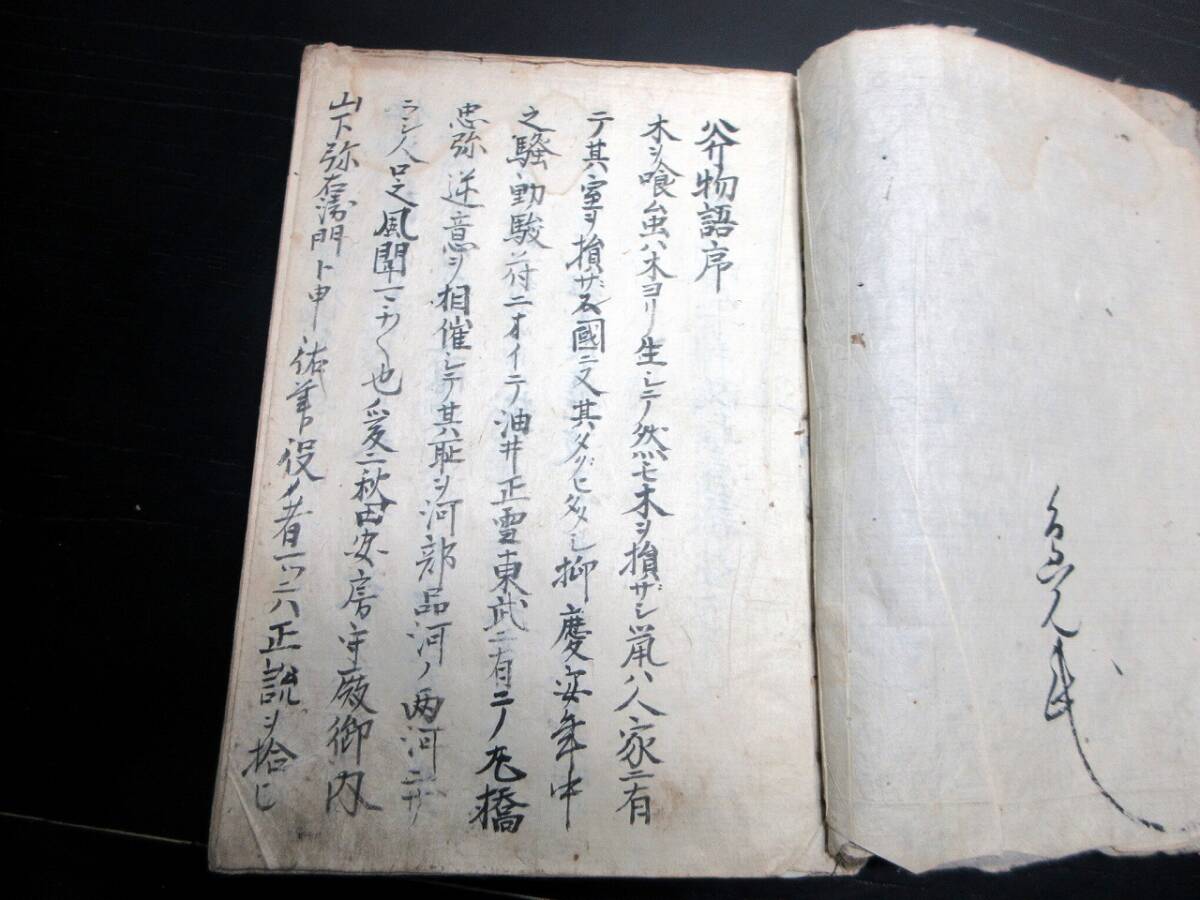 物語序
木ヲ喰ム虫ハ木ヨリ生シテ然モ木ヲ損ザシ鼠ハ人家ニ有
テ其室ヲ損ザス國ニ又其タグヒ多シ抑慶安年中
之騒動駿府ニオイテ油井正雪東武ニ有テノ丸橋
忠弥逆意ヲ相催シテ其恥ヲ河部品河ノ両河ニサ
ラシ人口之風聞也爰ニ秋田安房守殿御内
山下弥右衛門ト申佑筆役ノ者一ツニハ正説ヲ拾ヒ